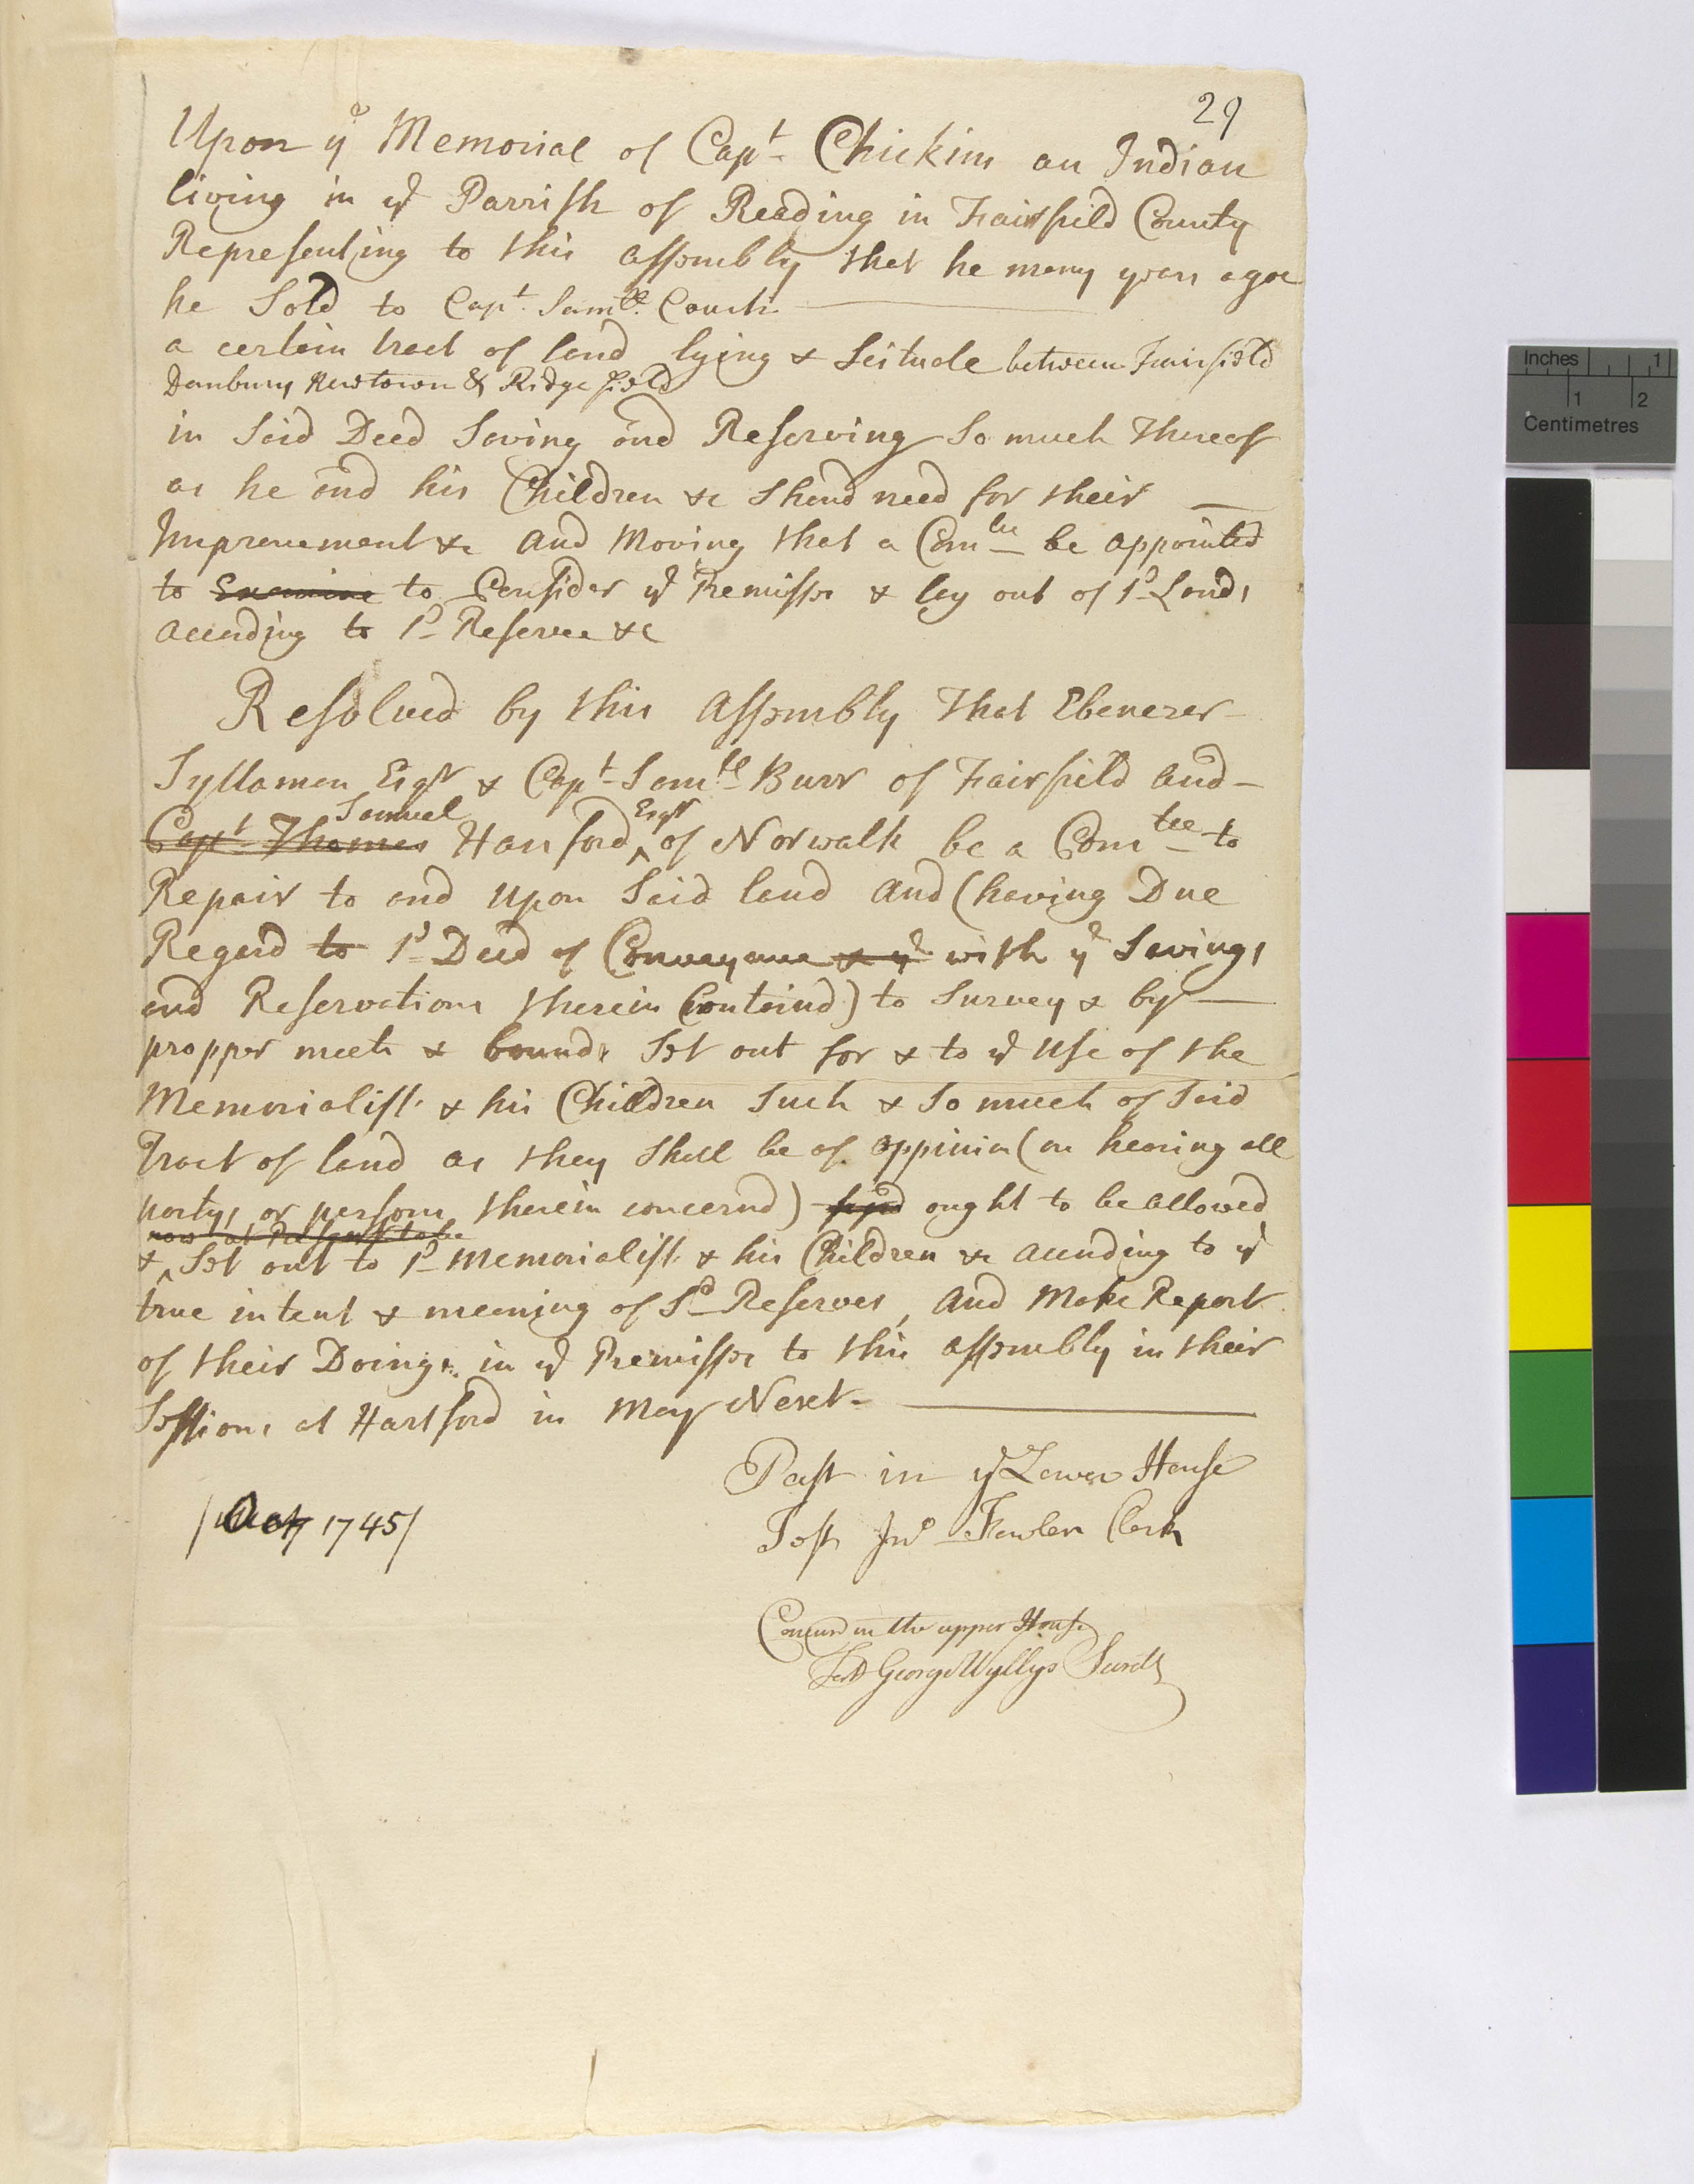 29
Upon ye Memorial of Capt. Chickins an Indian
living in ye Parrish of Reading in Fairfield County
Representing to this Assembly that he many years agoe
he Sold to Capt. Samll. Couch
a certain tract of land lying & Scituate between Fairfield
Danbury Newtown & Ridgefield
in Said Deed Saving and Reserving So much thereof
as he and his Children &c Shoud need for their
Improvement &c and Moving that a Comtee be appointed
to Examine to Consider ye Premisses & lay out of sd Lands
according to sd Reserve &c
Resolved by this Assembly That Ebenezer
Syllaman Esqr & Capt Samll Burr of Fairfield and
Samuel Esqr
Capt Thomas Hanford ^ of Norwalk be a Comtee to
Repair to and upon Said land and (having Due
Regard to sd Deed of Conveyance & ye with ye Savings
and Reservations therein Containd) to Survey & by
propper meets & bounds Set out for & to ye use of the
Memorialist & his Children Such & So much of Said
Tract of land as they Shall be of oppinion (on hearing all
partys or persons therein concernd) ought to be allowed
now at Present to be
& ^ Set out to sd Memorialist & his Children &c according to ye
true intent & meaning of Sd Reserves, and Make Report
of their Doings in ye Premisses to this Assembly in their
Sessions at Hartford in May Next
Past in ye Lower House
/Oct 1745/
Test Jno Fowler Clerk
Concurd in the upper House
Test George Wyllys Secrety
Inches 1
1 2
Centimetres